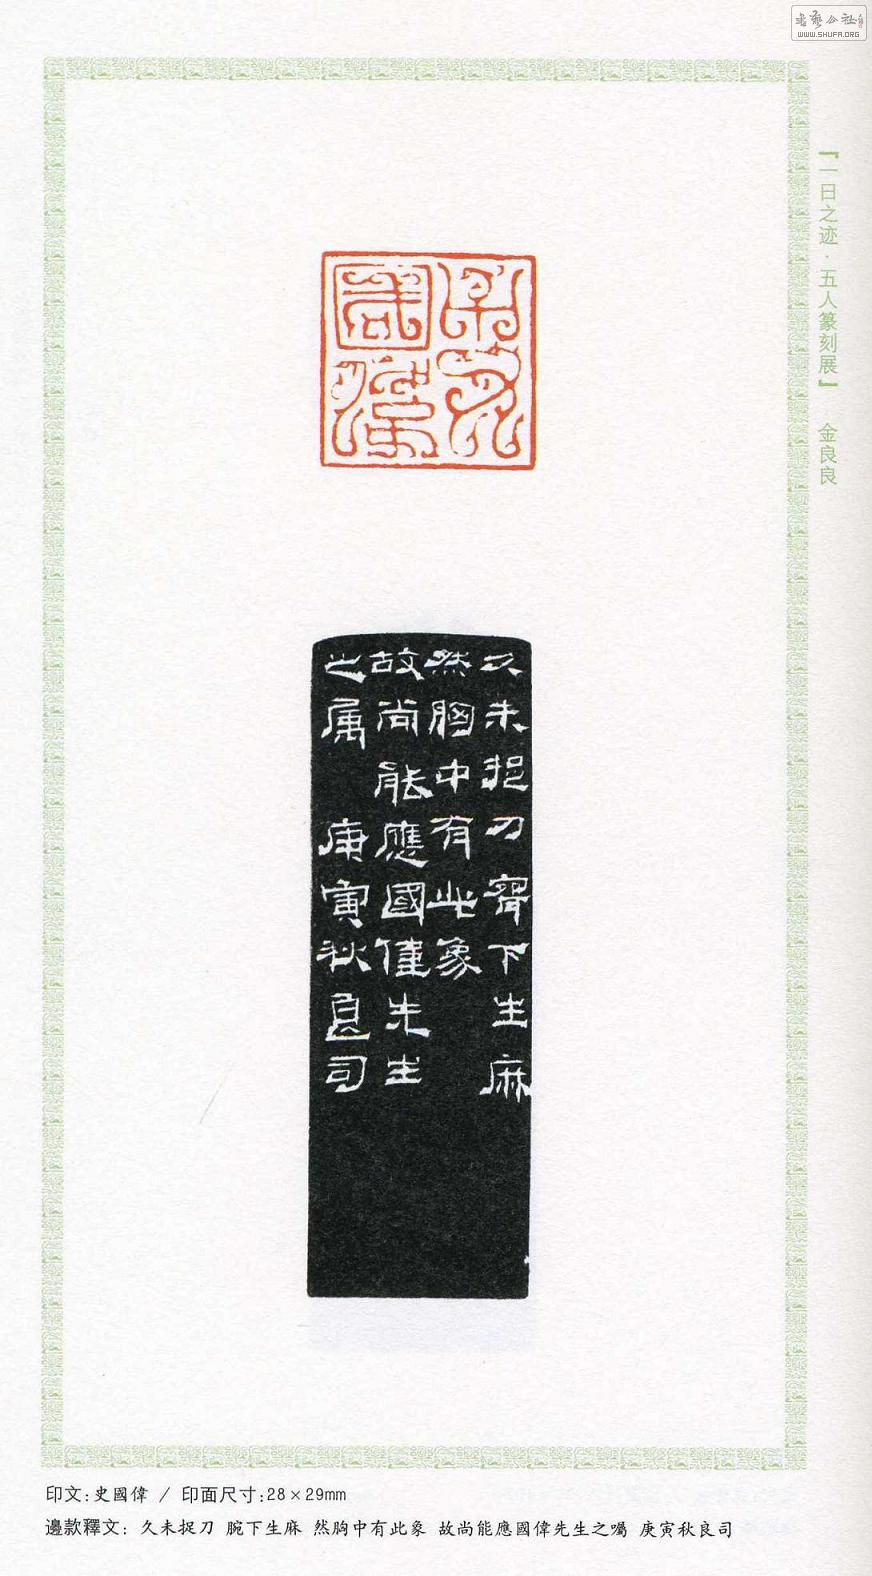 書藝公社
WWW.SHUFA.ORG
『一日之迹·五人篆刻展』 金良良
史國偉
久未捉刀腕下生麻
然胸中有此象
故尚能應國偉先生
之属 庚寅秋良司
印文:史國偉 / 印面尺寸:28×29mm
邊款釋文: 久未捉刀 腕下生麻 然胸中有此象 故尚能應國偉先生之囑 庚寅秋良司